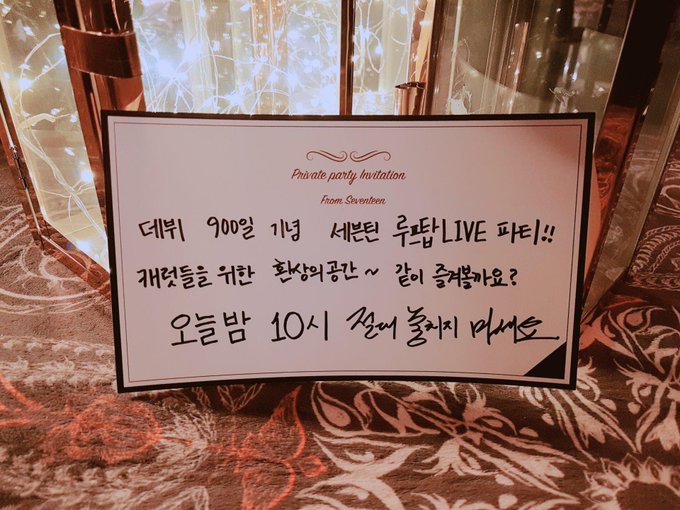 Private party Invitation
From Seventeen
데뷔 900일 기념 세븐틴 루프탑 LIVE 파티!!
캐럿들을 위한 환상의 공간~ 같이 즐겨볼까요?
오늘밤 10시 절대 놓치지 마세요